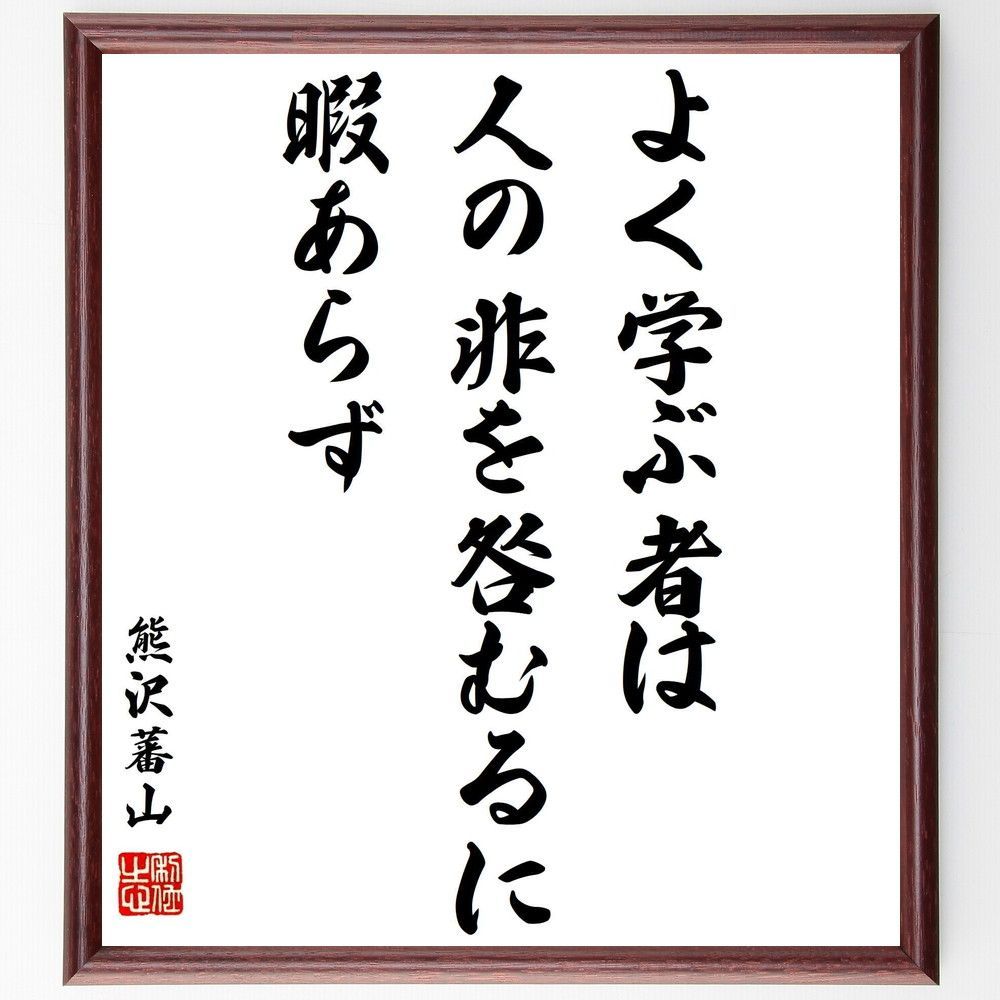 よく学ぶ者は
人の非を咎むるに
暇あらず
熊沢蕃山